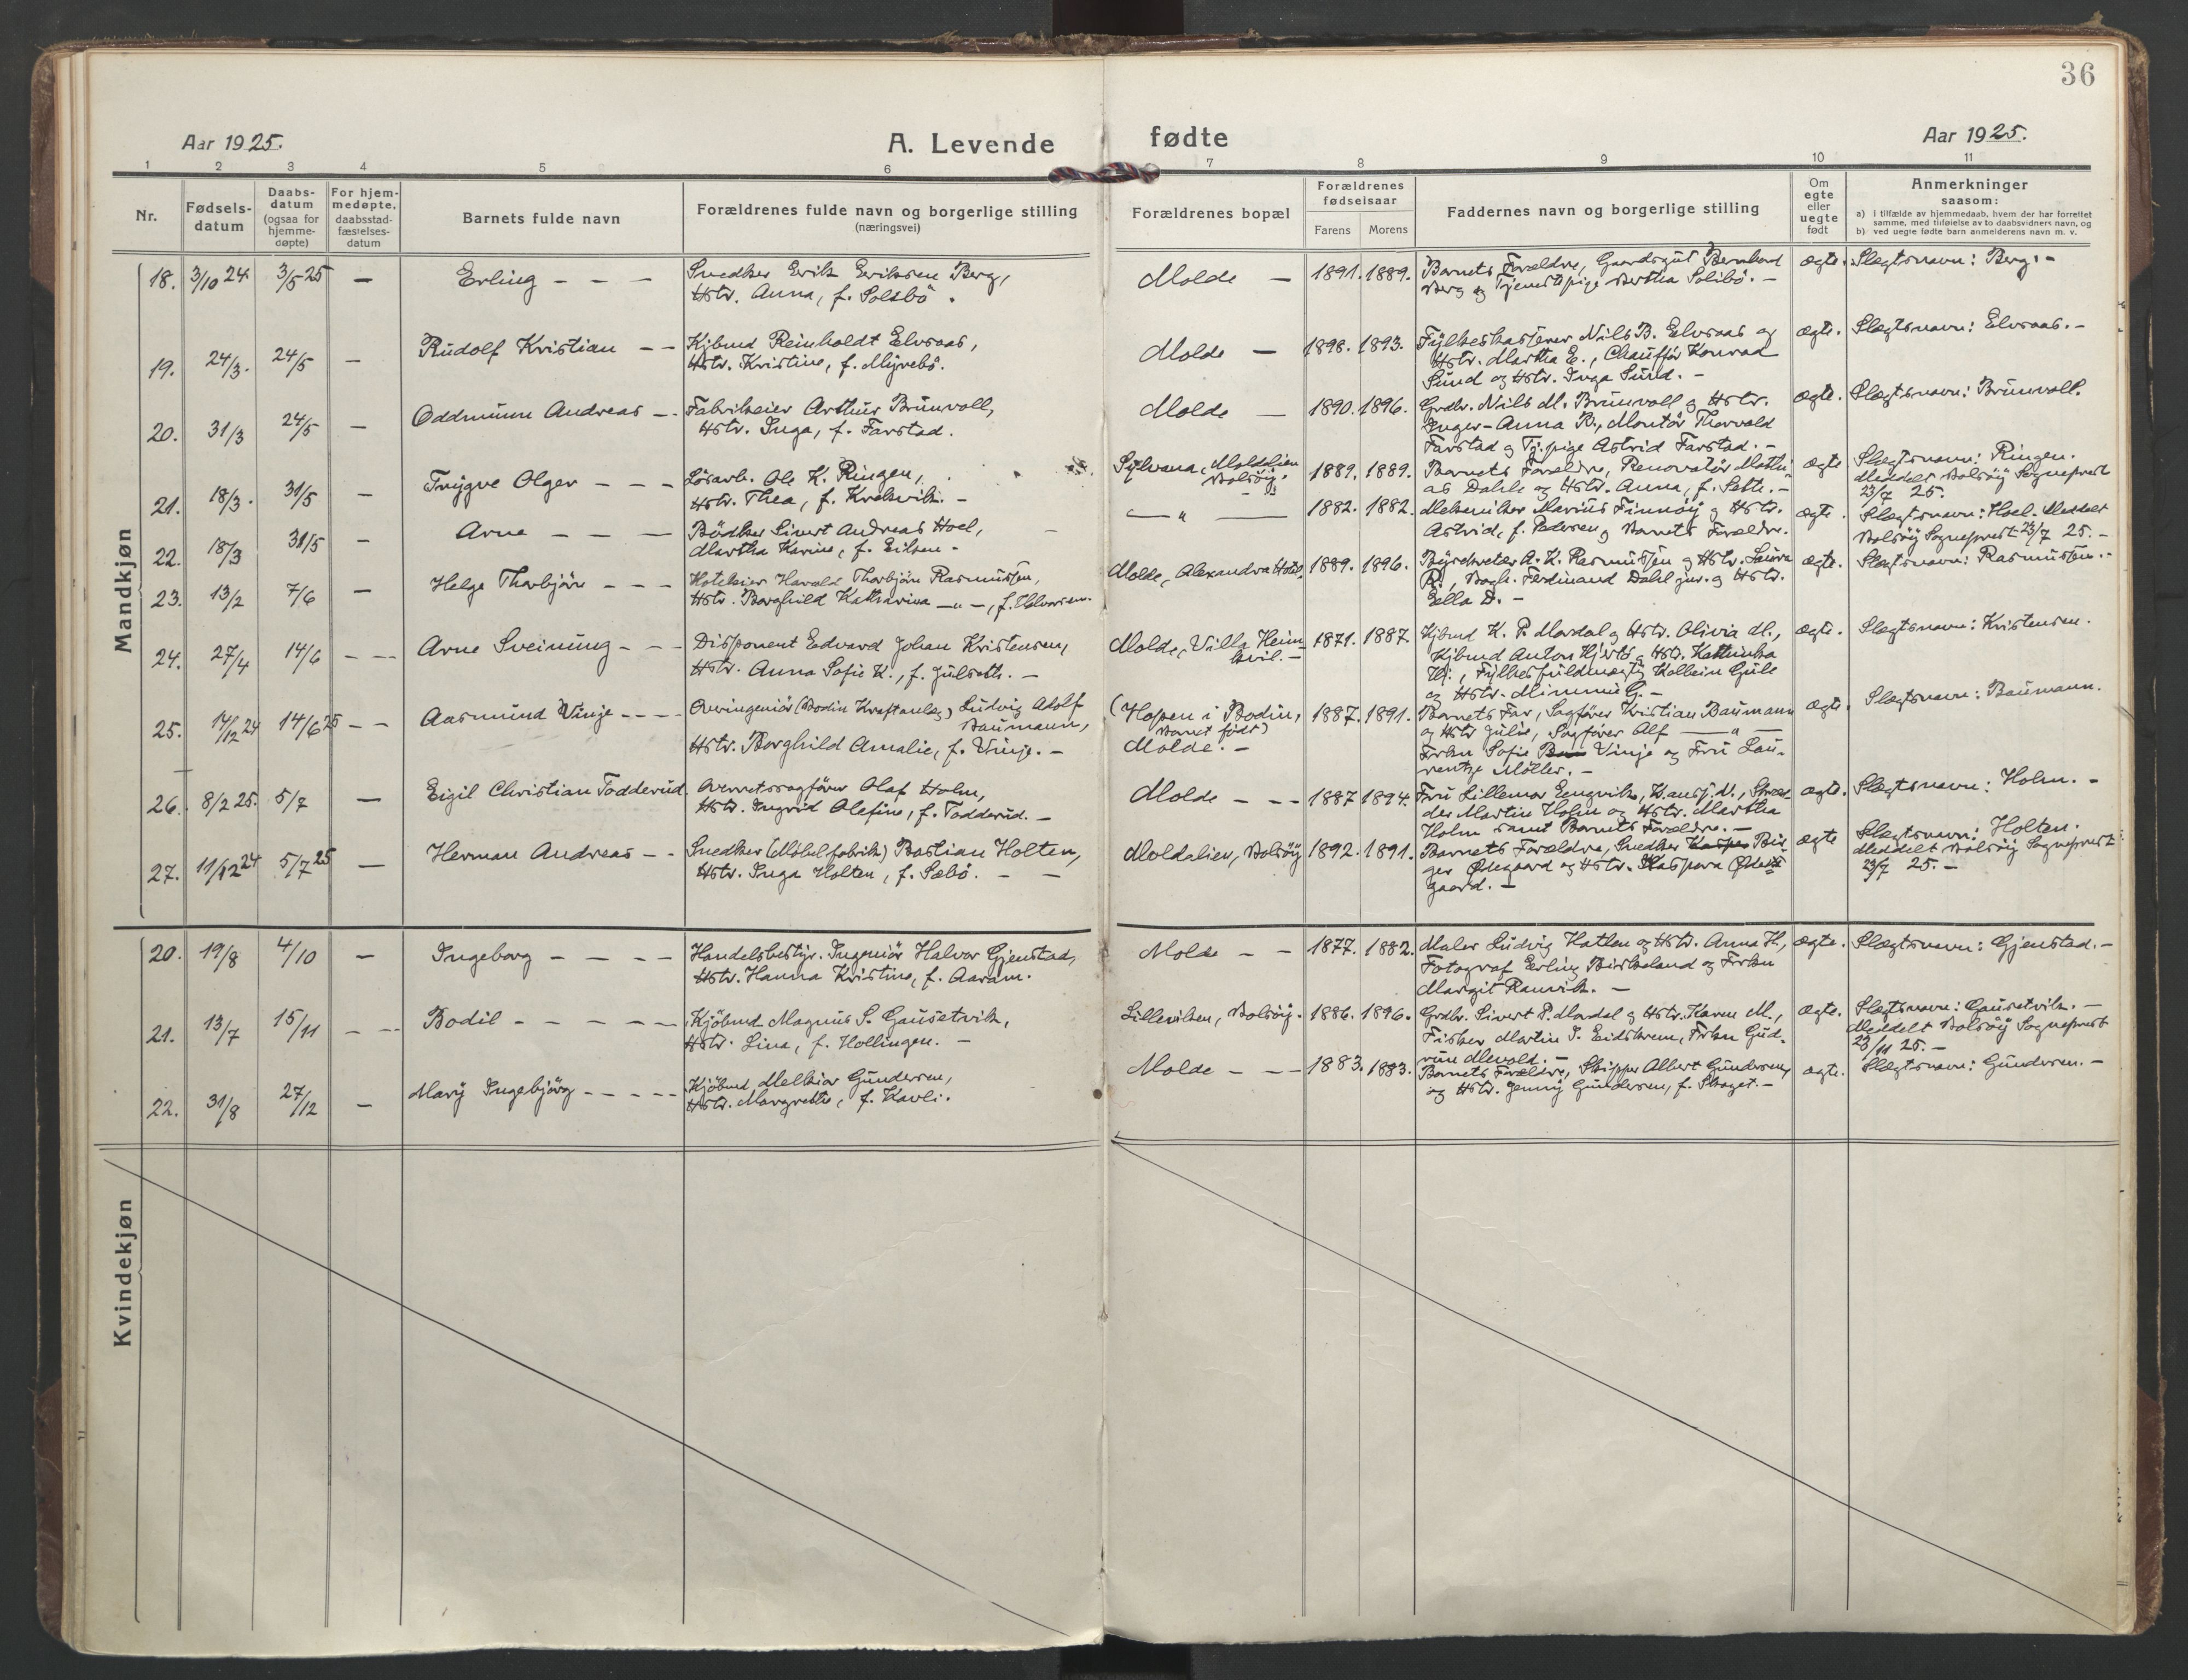 36
Aar 1925.
A. Levende fødte
Aar 1925.
1 2 3 4 5 6 7 8 9 10 11
Nr.
Fødsels-
datum
Daabs-
datum
(ogsaa for
hjemme-
døpte)
For hjem-
medøpte,
daabsstad-
fæstelses-
datum
Barnets fulde navn
Forældrenes fulde navn og borgerlige stilling
(næringsvei)
Forældrenes bopæl
Forældrenes
fødselsaar
Farens Morens
Faddernes navn og borgerlige stilling
Om
egte
eller
uegte
født
Anmerkninger
saasom:
a) i tilfælde av hjemmedaab, hvem der har forrettet
samme, med tilføielse av to daabsvidners navn, og
b) ved uegte fødte barn anmelderens navn m. v.
Mandkjøn
18. 3/10 24. 3/5 25 — Erling — — —
Snedker Erik Eriksen Berg,
Hstr. Anna, f. Solsbö.
Molde — 1891. 1889.
Barnets Forældre, Gaardsgut Bernhard
Berg og Tjenestpige Bertha Solsbö. —
ægte. Slægtsnavn: Berg. —
19. 24/3. 24/5 — Rudolf Kristian — —
Kjbmd Reinholdt Elvsaas,
Hstr. Kristine, f. Myrebö.
Molde — 1898. 1893.
Fylkeskasserer Nils B. Elvsaas og
Hstr. Martha E., Chauffør Konrad
Sund og Hstr. Inga Sund. —
ægte. Slægtsnavn: Elvsaas. —
20. 31/3 24/5 — Oddmunn Andreas — .
Fabrikeier Arthur Brunvoll,
Hstr. Inga, f. Farstad.
Molde — 1890. 1896.
Grdbr. Nils M. Brunvoll og Hstr.
Inger-Anna B., Montör Thorvald
Farstad og Tj.pige Astrid Farstad. —
ægte. Slægtsnavn: Brunvoll.
21. 18/3. 31/5 — Trygve Olger — — —
Lösarb. Ole K. Ringen,
Hstr. Thea, f. Krekvik. —
Sylvana, Moldelien
Bolsöy. 1889. 1889.
Barnets Forældre, Renovatör Mathi-
as Dahle og Hstr. Anna, f. Sette. —
ægte Slægtsnavn: Ringen.
Meddelt Bolsöy Sogneprest
23/7 25.
22. 18/3 31/5 — Arne — — —
Bödker Sivert Andreas Hoel,
Martha Karine, f. Eilsen. —
— " — 1882. 1882.
Mekaniker Marius Finnöy og Hstr.
Astrid, f. Pedersen og Barnets Forældre.
ægte. Slægtsnavn: Hoel. Meddelt
Bolsöy Sogneprest 23/7 25. —
23. 13/2 7/6 — Helge Thorbjörn — — —
Hoteleier Harald Thorbjörn Rasmussen,
Hstr. Borghild Katharina — " —, f. Halvorsen.
Molde, Alexandra Hotel. 1889. 1896.
Byrdskriver A. K. Rasmussen og Hstr. Laura
R., Bagh. Ferdinand Dahl jun. og Hstr.
Ella D. —
ægte. Slægtsnavn: Rasmussen. —
24. 27/4 14/6 — — Arne Sveinung — — —
Disponent Edvard Johan Kristensen,
Hstr. Anna Sofie K., f. Julseth. —
Molde, Villa Heim-
kvil. — 1871. 1887
Kjbmd K. P. Mordal og Hstr. Olivia M.,
Kjbmd Anton Hjertö og Hstr. Kathinka
Hj., Fylkesfuldmægtig Kolbein Gule
og Hstr. Mimmi G. —
ægte. Slægtsnavn: Kristensen.
25. 17/12 24 14/6 25 — — Aasmund Vinje — — — —
Overingeniör (Bodin Kraftanlæg) Ludvig Adolf
Baumann,
Hstr. Borghild Amalie, f. Vinje. —
(Hopen i Bodin,
Barnet födt)
Molde. — 1887. 1891.
Barnets Far, Sagförer Kristian Baumann
og Hstr Julie, Sagförer Alf — " —
Frkn Sofie Vinje og Fru Lau-
rentze Möller. —
ægte. Slægtsnavn: Baumann.
26. 8/2 25. 5/7 — Eigil Christian Todderud.
Overretssagförer Olaf Holm,
Hstr. Ingrid Olefine, f. Todderud. —
Molde — — — 1887 1894.
Fru Lillemor Engvik, Hansj. M., Skræd-
der Martin Holm og Hstr. Martha
Holm samt Barnets Forældre. —
ægte. Slægtsnavn: Holm. —
27. 11/12 24 5/7 25 — Herman Andreas — —
Snedker (Möbelfabrik) Bastian Holten,
Hstr. Inga Holten, f. Sæbö. — —
Moldelien, Bolsöy 1892. 1891.
Barnets Forældre, Snedker Kasper Bir-
ger Ødegaard og Hstr. Kaspara Øde-
gaard. —
ægte Slægtsnavn: Holten.
Meddelt Bolsöy Sogneprest
23/7 25. —
Kvindekjøn
20. 19/8 4/10 — Ingeborg — — — —
Handelsbestyr. Ingeniör Halvor Gjenstad,
Hstr. Hanna Kristine, f. Aaram.
Molde — — 1877. 1882.
Maler Ludvig Hatlen og Hstr. Anna H.,
Fotograf Erling Birkeland og Frkn
Margit Ranvik. —
ægte. Slægtsnavn: Gjenstad. —
21. 13/7 15/11 — — Bodil — — — — —
Kjöbmd Magnus S. Gausetvik,
Hstr. Lina, f. Hollingen. —
Lilleviken, Bolsöy. 1886. 1896.
Grdbr. Sivert P. Mordal og Hstr. Karen M.,
Fisker Martin J. Eidskrem, Frkn Gud-
run Mevold. —
ægte. Slægtsnavn: Gausetvik. —
Meddelt Bolsöy Sogneprest
23/11 25. —
22. 31/8 27/12 — Mary Ingebjörg — — — —
Kjöbmd Melkior Gundersen,
Hstr. Margrethe, f. Kavli.
Molde — — — 1883. 1883.
Barnets Forældre, Skipper Albert Gundersen,
og Hstr. Jenny Gundersen, f. Skaget. —
ægte. Slægtsnavn: Gundersen. —